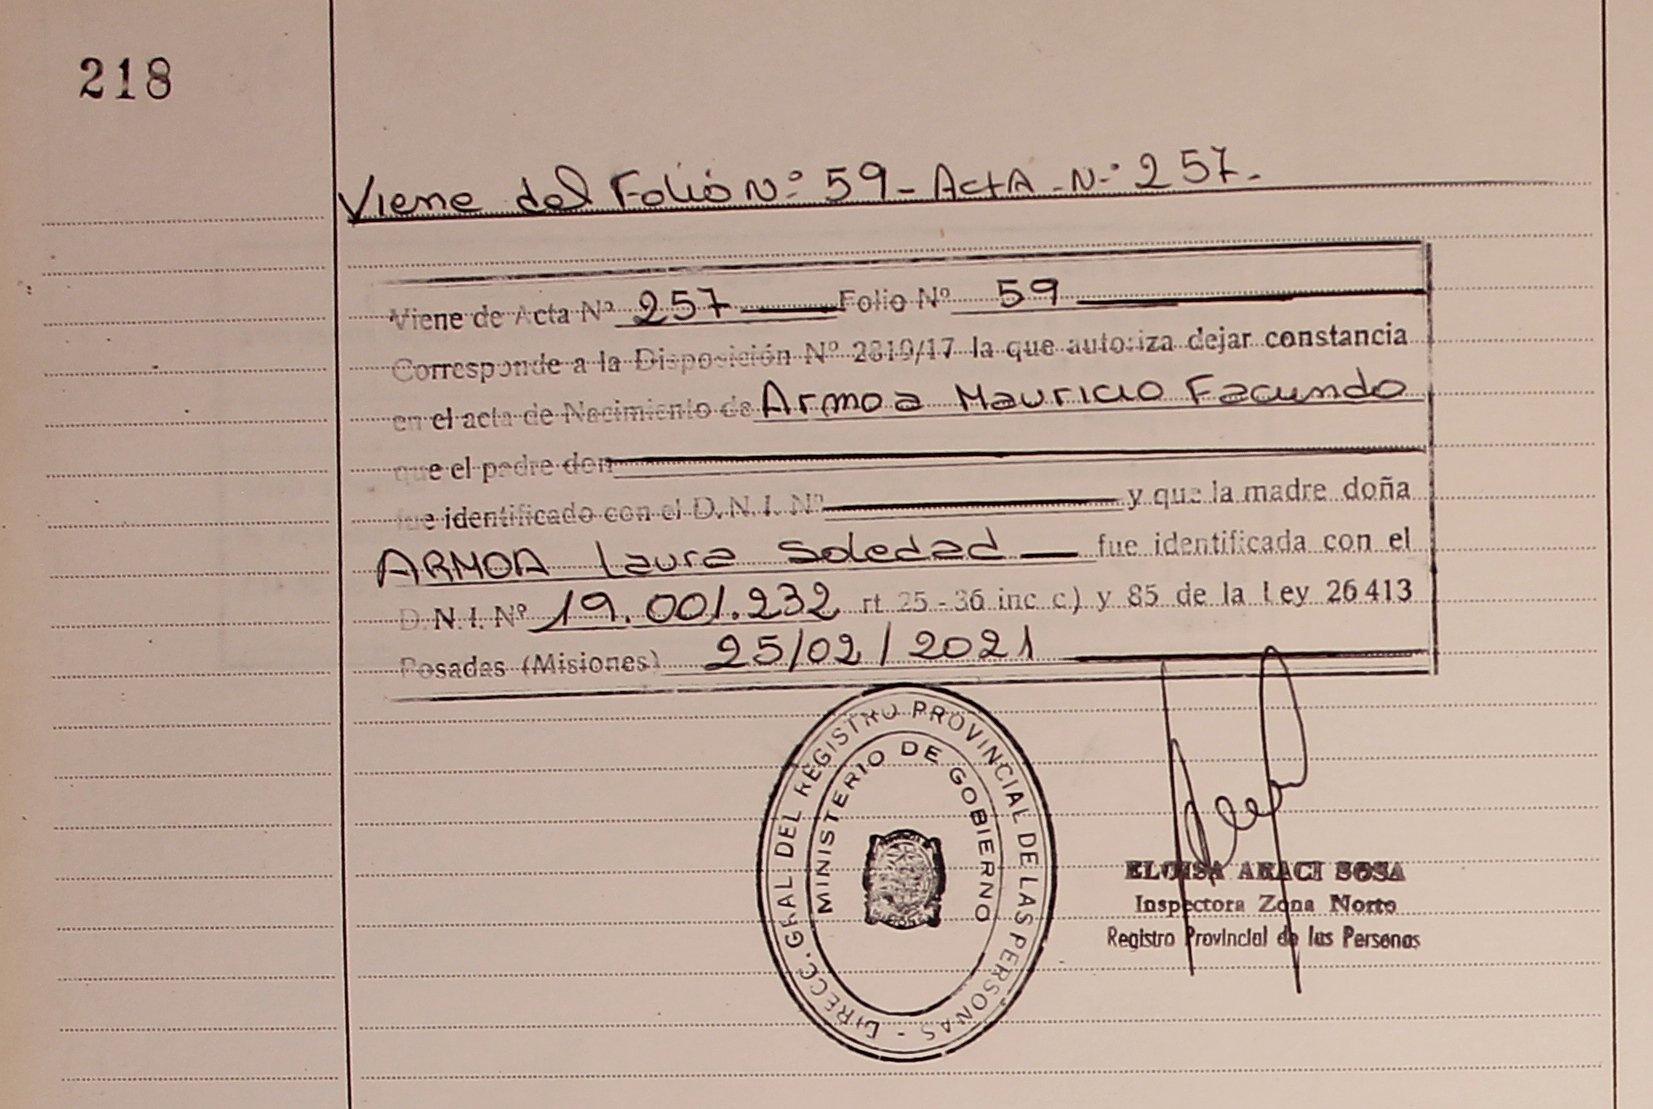 218
Viene del Folio N° 59 - ActA - N° 257.
Viene de Acta Nº 257 Folio Nº 59
Corresponde a la Disposición Nº 2810/17 la que autoriza dejar constancia
en el acta de Nacimiento de Armoa Mauricio Facundo
que el padre don
fue identificado con el D.N.I. Nº y que la madre doña
ARMOA Laura Soledad fue identificada con el
D.N.I. Nº 19.001.232 rt 25 - 36 inc c) y 85 de la Ley 26413
Posadas (Misiones) 25/02/2021
DIRECC. GRAL DEL REGISTRO PROVINCIAL DE LAS PERSONAS -
MINISTERIO DE GOBIERNO
ELOISA ARACI SOSA
Inspectora Zona Norte
Registro Provincial de las Personas